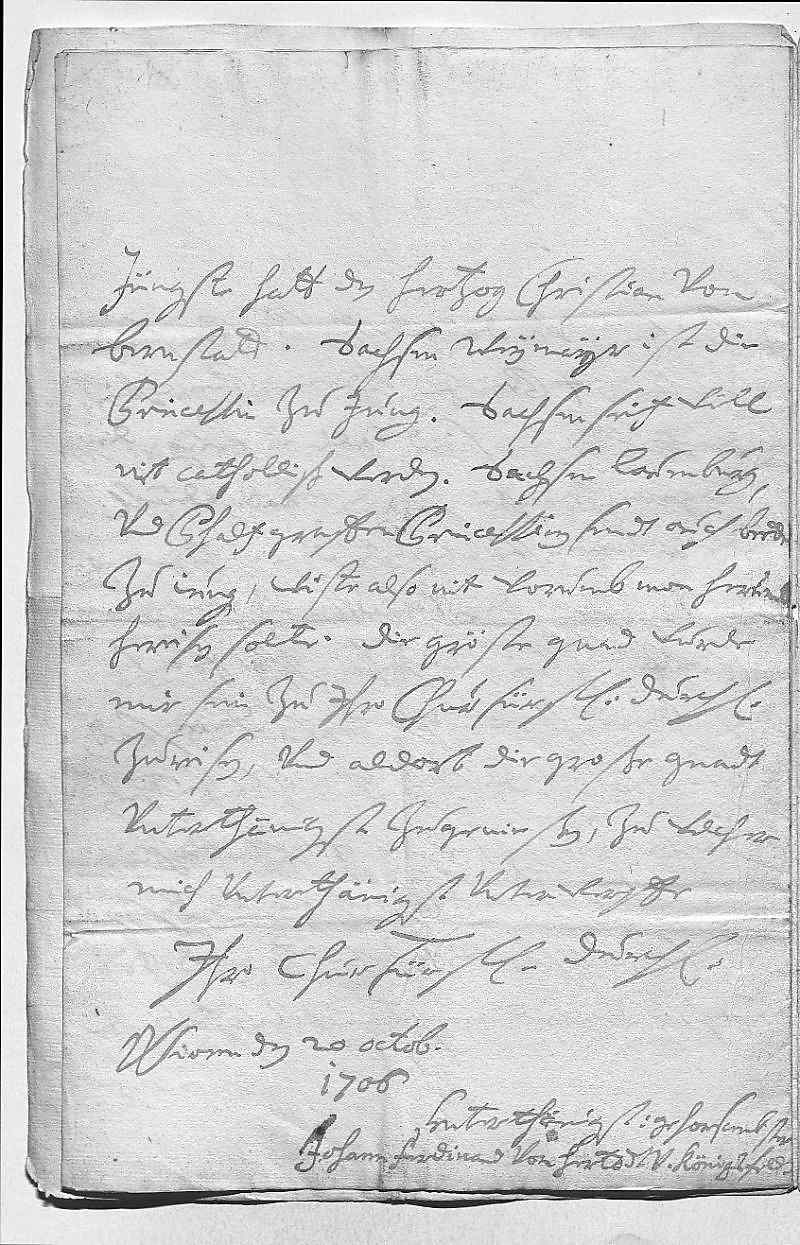 Jüngste hatt der Hertzog Christian von
bernstatt. Sachsen Weymayr ist die
Princessin zu Jung. Sachsen will
nit catholisch werden. Sachsen lauenburg,
und Pfalzgraffen Princessin seindt auch beede
zu iung, also nit warumb man
solte. die gröste gnad wurde
mir sein zu Ihro Churfürstl: Durchl:
zu reisen, und aldort die grosse gnadt
unterthänigst zu geniessen, zu welcher
mich unterthänigst unterwerffe
Ihro Churfürstl. Durchl.
Wienn den 20 octob.
1706
unterthänigst: gehorsambster
Johann Ferdinand von Hertod V. Königsfeld